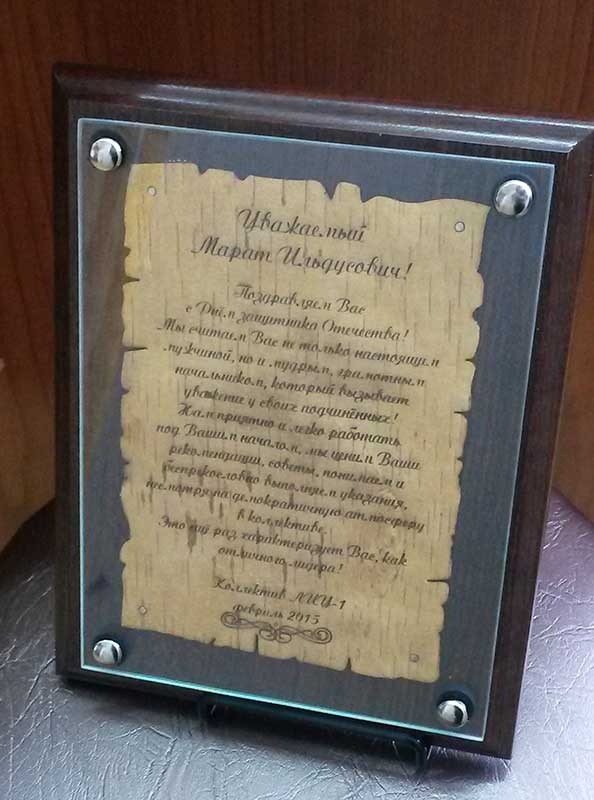 Уважаемый
Марат Ильдусович!
Поздравляем Вас
с Днём защитника Отечества!
Мы считаем Вас не только настоящим
мужчиной, но и мудрым, грамотным
начальником, который вызывает
уважение у своих подчинённых!
Нам приятно и легко работать
под Вашим началом, мы ценим Ваши
рекомендации, советы, понимаем и
беспрекословно выполняем указания,
несмотря на демократичную атмосферу
в коллективе.
Это ещё раз характеризует Вас, как
отличного лидера!
Коллектив ЛИЦ-1
февраль 2015